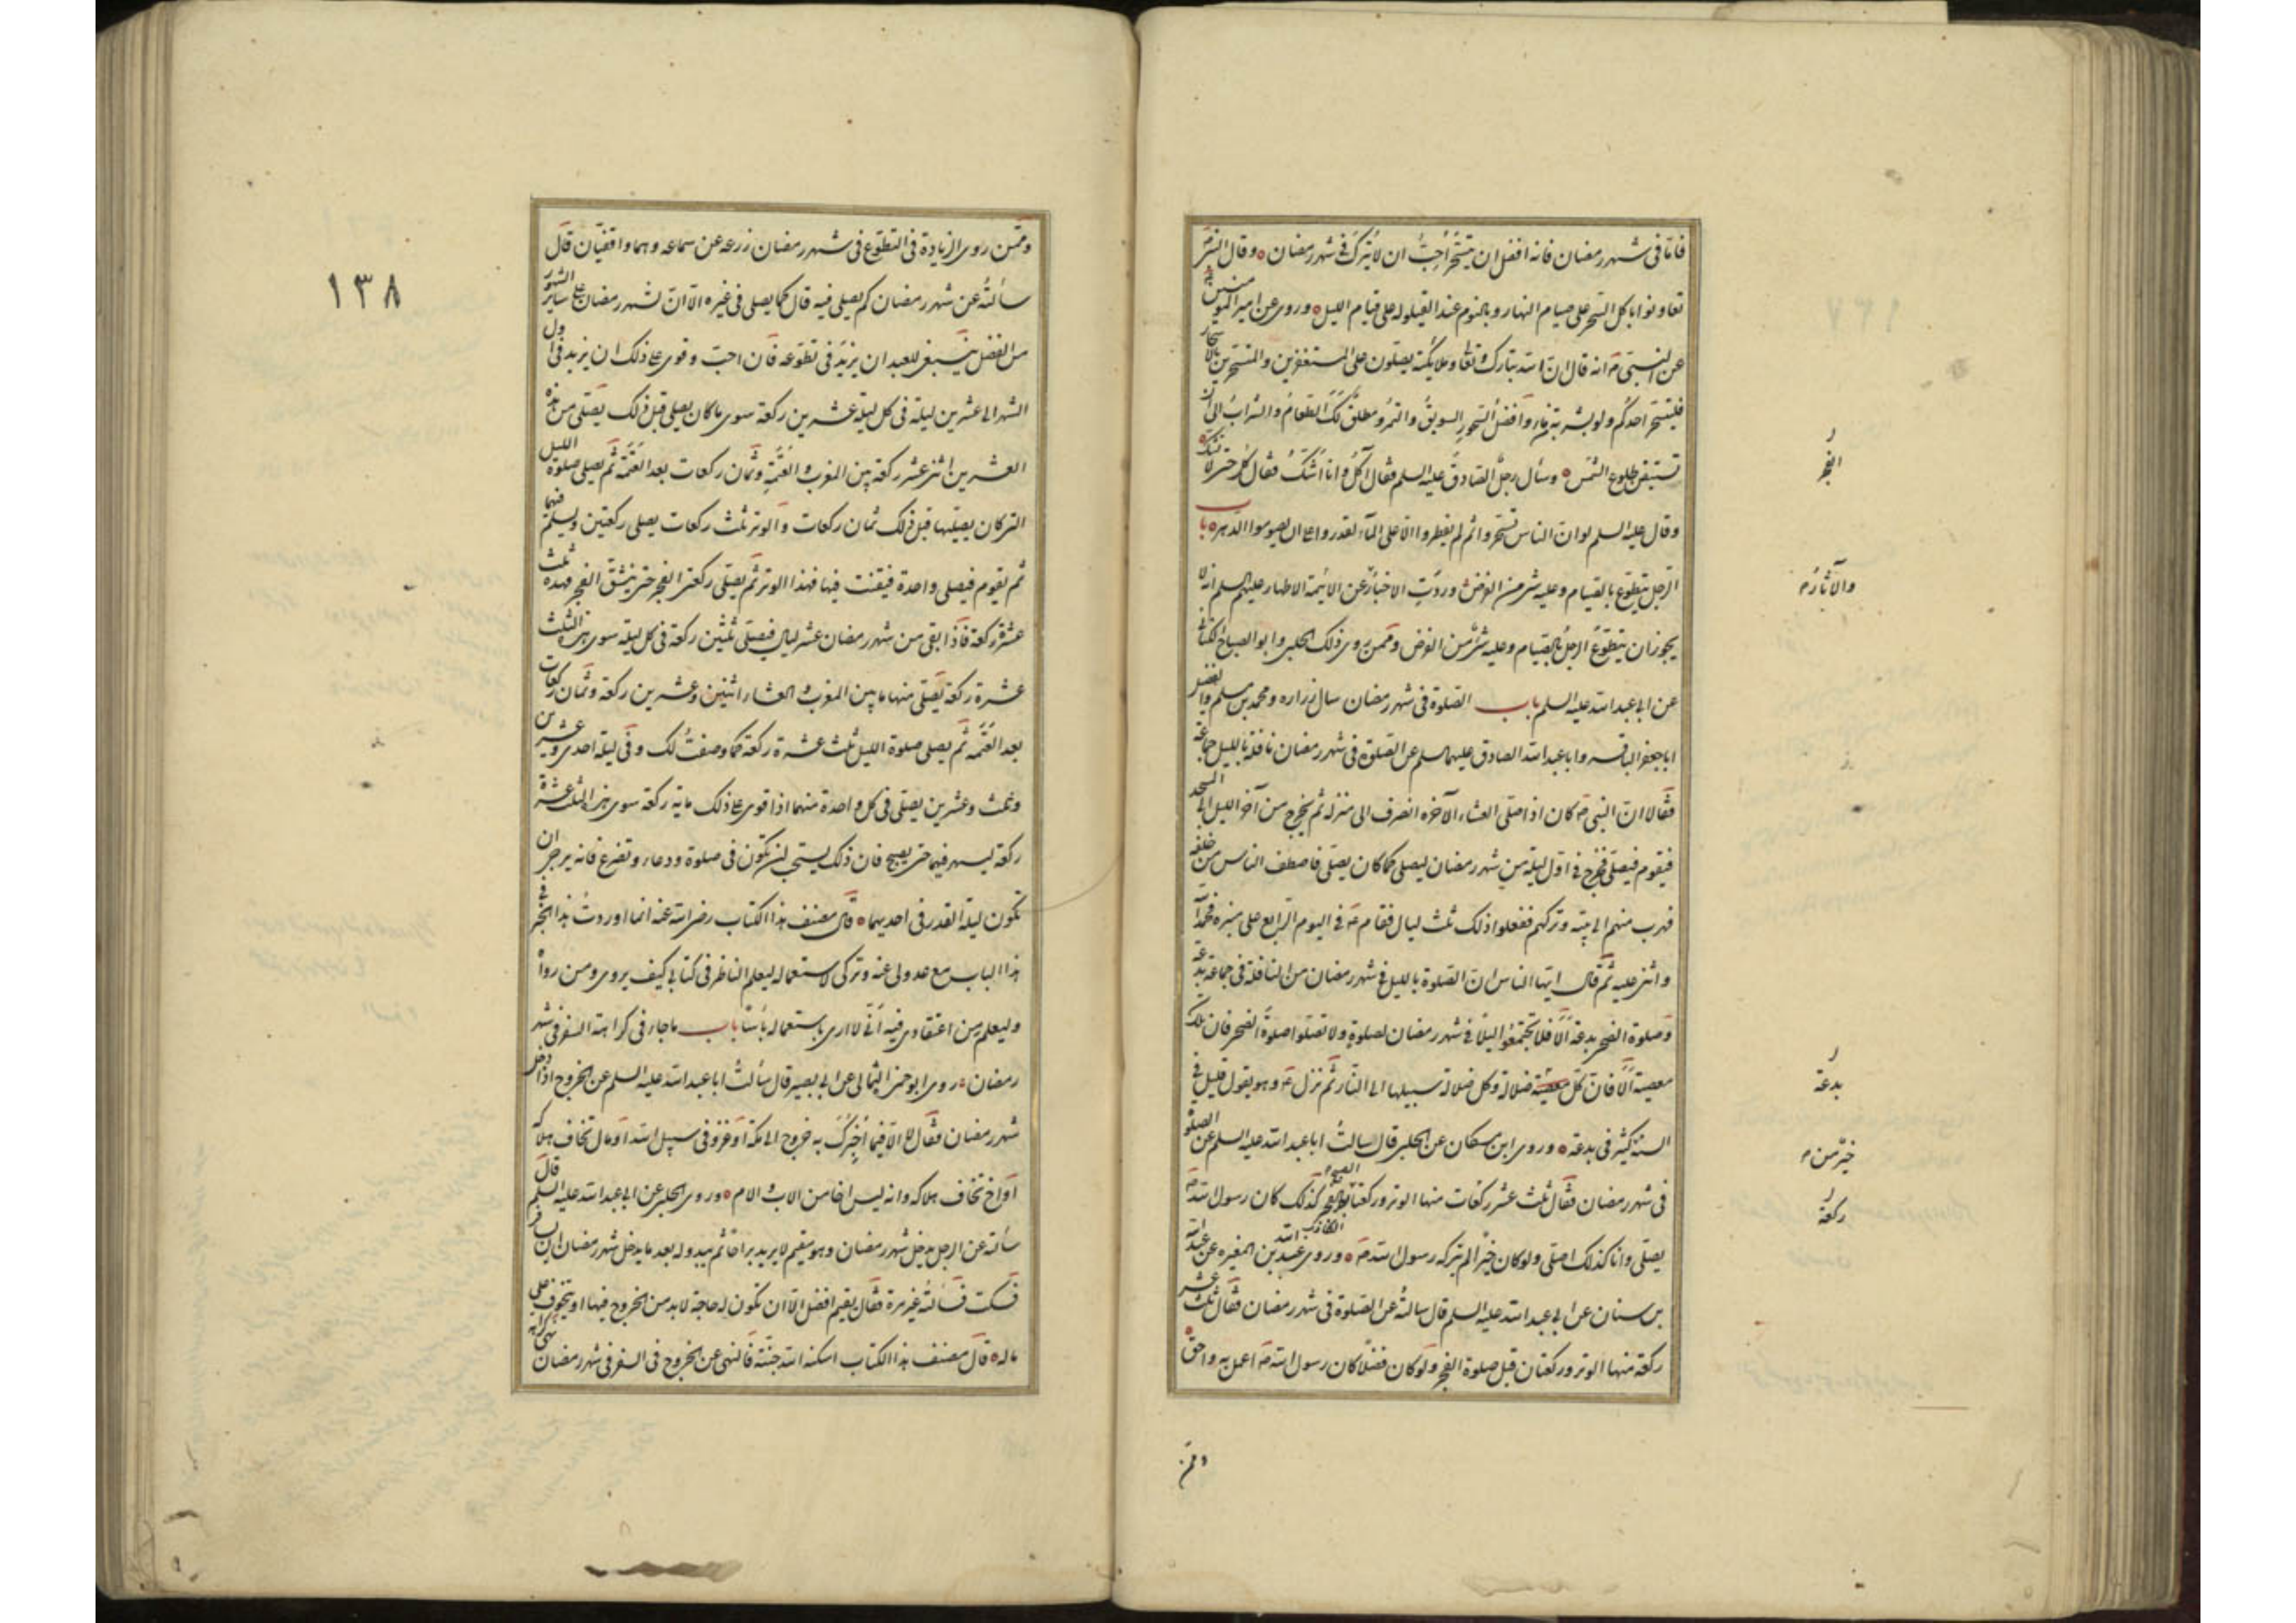 فاما فى شهر رمضان فانه افضل ان يتسحر اُحِبُّ ان لا يُترك فى شهر رمضان وقال النبى ص
تعاونوا باكل السحر على صيام النهار وبالنوم عند القيلوله على قيام الليل وروى عن امير المومنين ع
عن النبى ص انه قال ان الله تبارك وتعا وملائكته يصلون على المستغفرين والمتسحرين بالاسحار
فليتسحر احدكم ولو بشربة من ماء وافضل السحور السويق والتمر ومطلق لك الطعام والشراب الى ان
تستيقن طلوع الشمس وسأل رجل الصادق عليه السلم فقال آكل وانا اشك فقال كل حتى لا تشك
وقال عليه السلم لو ان الناس تسحروا ثم لم يفطروا الا على الماء لقدروا على ان يصوموا الدهر باب
الرجل يتطوع بالصيام وعليه شئ من الفرض وردت الاخبار عن الائمة الاطهار عليهم السلم انه لا
يجوز ان يتطوع الرجل بالصيام وعليه شئ من الفرض وممن روى ذلك الحلبى وابو الصباح الكنانى
عن ابى عبد الله عليه السلم باب الصلوة فى شهر رمضان سال زراره ومحمد بن مسلم والفضيل
ابا جعفر الباقر وابا عبد الله الصادق عليهما السلم عن الصلوة فى شهر رمضان نافلة بالليل جماعة
فقالا ان النبى ص كان اذا صلى العشاء الآخره انصرف الى منزله ثم يخرج من آخر الليل الى المسجد
فيقوم فيصلى فخرج فى اول ليلة من شهر رمضان ليصلى كما كان يصلى فاصطف الناس من خلفه
فهرب منهم الى بيته وتركهم ففعلوا ذلك ثلث ليال فقام ص فى اليوم الرابع على منبره فحمد الله
واثنى عليه ثم قال ايها الناس ان الصلوة بالليل فى شهر رمضان من النافلة فى جماعة بدعة
وصلوة الضحى بدعة اَلا فلا تجتمعوا ليلا فى شهر رمضان لصلوة ولا تصلوا صلوة الضحى فان تلك
معصية اَلا فان كل معصية ضلالة وكل ضلالة سبيلها الى النار ثم نزل ص وهو يقول قليل فى
السنة كثير فى بدعة وروى ابن مسكان عن الحلبى قال سالت ابا عبد الله عليه السلم عن الصلوة
فى شهر رمضان فقال ثلث عشر ركعات منها الوتر وركعتا الفجر كذلك كان رسول الله ص
يصلى وانا كذلك اصلى ولو كان خيرا لم يتركه رسول الله ص وروى عبد الله بن المغيره عن عبد الله
بن سنان عن ابى عبد الله عليه السلم قال سالته عن الصلوة فى شهر رمضان فقال ثلث عشر
ركعة منها الوتر وركعتان قبل صلوة الفجر ولو كان فضلا كان رسول الله ص اعمل به واحق
وممن
الفجر
والآثار
بدعة
خير من
ركعة
١٣٨
وممن روى الزيادة فى التطوع فى شهر رمضان زرعه عن سماعه وهما واقفيان قال
سألته عن شهر رمضان كم يصلى فيه قال كما يصلى فى غيره الا ان لشهر رمضان على ساير الشهور
من الفضل ينبغى للعبد ان يزيد فى تطوعه فان احب وقوى على ذلك ان يزيد فى اول
الشهر الى عشرين ليلة فى كل ليلة عشرين ركعة سوى ما كان يصلى قبل ذلك يصلى من هذه
العشرين اثنى عشر ركعة بين المغرب والعتمة وثمان ركعات بعد العتمة ثم يصلى صلوة الليل
التى كان يصليها قبل ذلك ثمان ركعات والوتر ثلث ركعات يصلى ركعتين ويسلم فيهما
ثم يقوم فيصلى واحدة فيقنت فيها فهذا الوتر ثم يصلى ركعتى الفجر حتى ينشق الفجر فهذه ثلث
عشرة ركعة فاذا بقى من شهر رمضان عشر ليال فيصلى ثلثين ركعة فى كل ليلة سوى هذه الثلث
عشرة ركعة يصلى منها ما بين المغرب والعشاء اثنتين وعشرين ركعة وثمان ركعات
بعد العتمه ثم يصلى صلوة الليل ثلث عشرة ركعة كما وصفت لك وفى ليلة احدى وعشرين
وثلث وعشرين يصلى فى كل واحدة منهما اذا قوى على ذلك ماية ركعة سوى هذه الثلث عشرة
ركعة ليسهر فيهما حتى يصبح فان ذلك يستحب ان تكون فى صلوة ودعاء وتضرع فانه يرجى ان
تكون ليلة القدر فى احديهما قال مصنف هذا الكتاب رضى الله عنه انما اوردت هذا الخبر فى
هذا الباب مع عدولى عنه وتركى لاستعماله ليعلم الناظر فى كتابى كيف يروى ومن رواه
وليعلم من اعتقادى فيه انى لا ارى باستعماله بأسا باب ما جاء فى كراهة السفر فى شهر
رمضان روى ابو حمزه الثمالى عن ابى بصير قال سألت ابا عبد الله عليه السلم عن الخروج اذا دخل
شهر رمضان فقال لا الا فيما اخبرك به خروج الى مكة او غزو فى سبيل الله او مال تخاف هلاكه
او اخ تخاف هلاكه وانه ليس اخا من الاب والام وروى الحلبى عن ابى عبد الله عليه السلم قال
سألته عن الرجل يدخل شهر رمضان وهو مقيم لا يريد براحا ثم يبدو له بعد ما يدخل شهر رمضان ان يسافر
فسكت فسألته غير مرة فقال يقيم افضل الا ان تكون له حاجة لا بد من الخروج فيها او يتخوف على
ماله قال مصنف هذا الكتاب اسكنه الله جنته فالنهى عن الخروج فى السفر فى شهر رمضان نهى كراهة